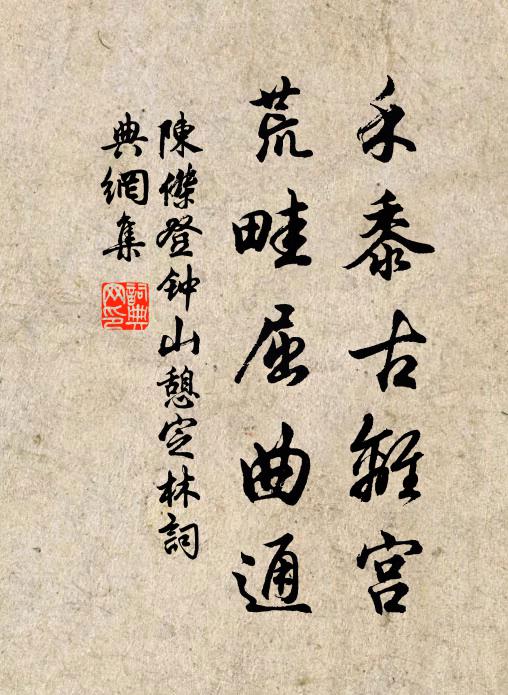 禾黍古離宫
荒畦屈曲通
陳傑登钟山憩定林詞
典網集
詞典网印